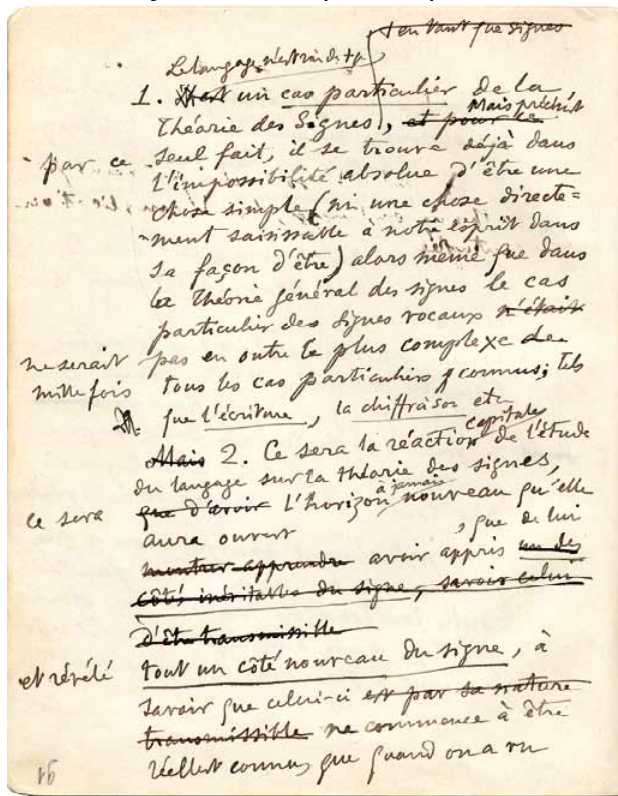 + en tant que signes
Le langage n'est rien de + qu
1. un cas particulier de la
Théorie des Signes, et pour ce Mais précist
par ce seul fait, il se trouve déjà dans
l'impossibilité absolue d'être une
chose simple (ni une chose directe-
ment saisissable à notre esprit dans
sa façon d'être) alors même que dans
la Théorie général des signes le cas
particulier des signes vocaux n'était
ne serait pas en outre le plus complexe de
mille fois tous les cas particuliers connus, tels
que l'écriture, la chiffraison etc
capitale
Mais 2. Ce sera la réaction de l'étude
du langage sur la théorie des signes,
ce sera que d'avoir l'horizon à jamais nouveau qu'elle
aura ouvert , que de lui
montrer apprendre avoir appris un des
côtés inéritables du signe, savoir celui
d'être transmissible
et révélé tout un côté nouveau du signe, à
savoir que celui-ci est par sa nature
transmissible ne commence à être
réellest connu, que quand on a vu
16